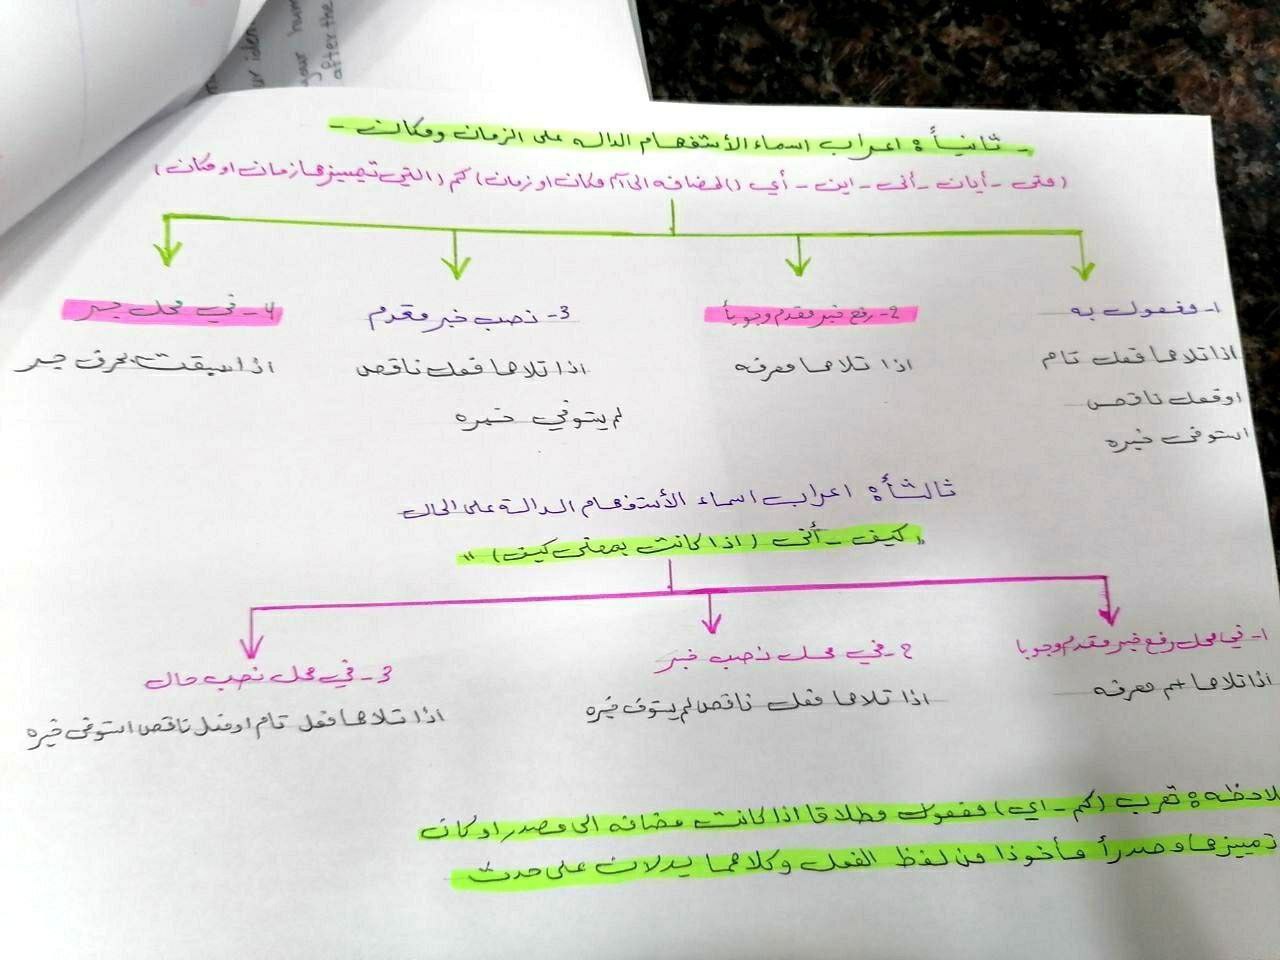 - ثانياً: اعراب اسماء الأستفهام الداله على الزمان ومكان -
(متى - أيان - أنى - اين - أي (المضافه الى آم مكان او زمان) كم (التي تمييزها زمان او مكان)
1- مفعول به
اذا تلاها فعل تام
او فعل ناقص
استوفى خبره
2- رفع خبر مقدم وجوباً
اذا تلاها معرفه
3- نصب خبر مقدم
اذا تلاها فعل ناقص
لم يتوفي خبره
4- في محل جر
اذا سبقت بحرف جر
ثالثاً: اعراب اسماء الأستفهام الدالة على الحال
"كيف - أنى (اذا كانت بمعنى كيف)"
1- في محل رفع خبر مقدم وجوبا
اذا تلاها معرفه
2- في محل نصب خبر
اذا تلاها فعل ناقص لم يتوف خبره
3- في محل نصب حال
اذا تلاها فعل تام او فعل ناقص استوفى خبره
لاحظه: تعرب (كم - اي) مفعول مطلقا اذا كانت مضافه الى مصدر او كان
تمييزها مصدراً مأخوذا من لفظ الفعل وكلاهما يدلان على حدث
your hum
after the